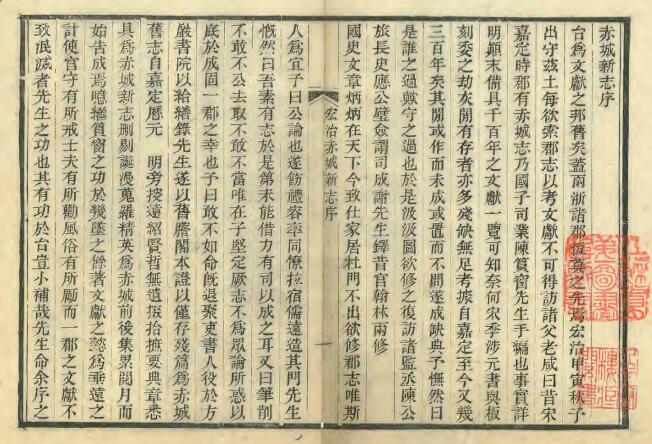 赤城新志序
台為文獻之邦舊矣蓋兩浙諸郡恆莫之先焉宏治甲寅秋予
出守茲土每欲索郡志以考文獻不可得訪諸父老咸曰昔宋
嘉定時郡有赤城志乃國子司業陳篔窗先生手編也事實詳
明顛末備具千百年之文獻一覽可知奈何宋季涉元書與板
刻委之劫灰閒有存者亦多殘缺無足考據自嘉定至今又幾
三百年矣其閒或作而未成或置而不閒遂成缺典予憮然曰
是誰之過歟守之過也於是汲汲圖欲修之復訪諸監丞陳公
旅長史應公璧僉謂司成謝先生鐸昔官翰林兩修
國史文章炳炳在天下今致仕家居杜門不出欲修郡志唯斯
宏治赤城新志序
一
人為宜子曰公論也遂飭禮容率同僚拉宿儒遠造其門先生
慨然曰吾素有志於是第未能借力有司以成之耳又曰筆削
不敢不公去取不敢不當唯在子堅定厥志不為眾論所惑以
底於成固一郡之幸也子曰敢不如命旣退聚吏書人役於方
巖書院以給繕錄先生遂以舊謄閣本證以僅存殘篇為赤城
舊志自嘉定歷元 明旁按遠紹賢哲無遺掇拾摭要典章悉
具為赤城新志刪剔誕漫蒐羅精英為赤城前後集累閱月而
始告成焉噫繼篔窗之功於幾墜之餘著文獻之懿為垂遠之
計使官守有所戒士夫有所勸風俗有所勵而一郡之文獻不
致泯滅者先生之功也其有功於台豈小補哉先生命余序之